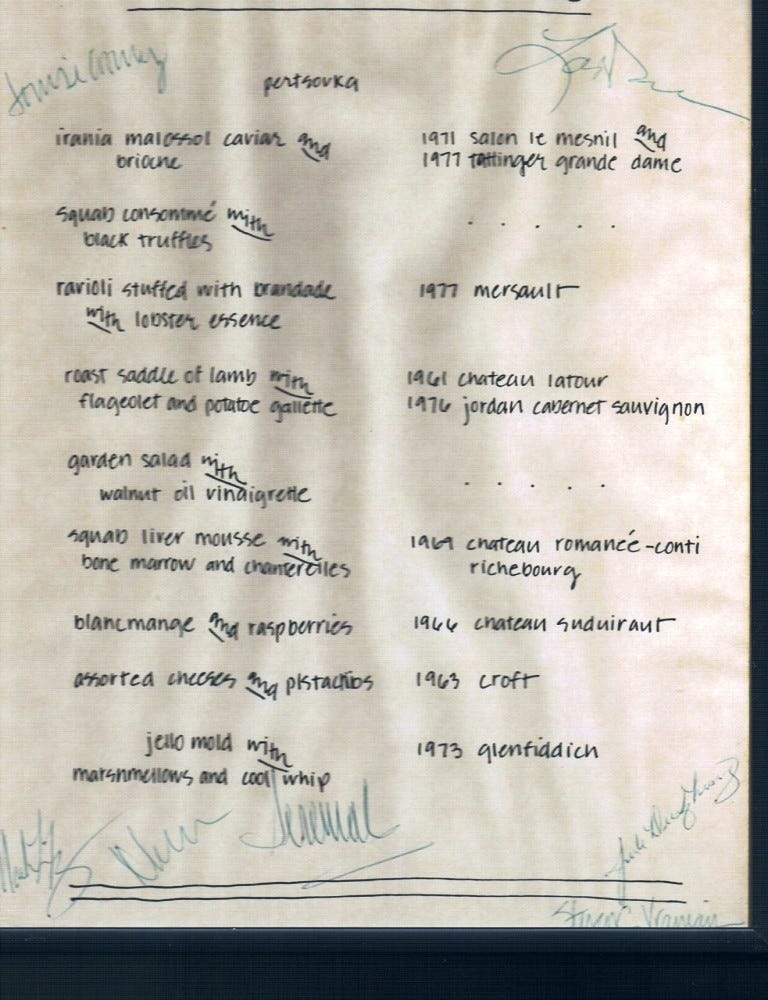 pertsovka
irania malossol caviar and
brioche
1971 salon le mesnil and
1977 tattinger grande dame
squab consommé with
black truffles
. . . . .
ravioli stuffed with brandade
with lobster essence
1977 mersault
roast saddle of lamb with
flageolet and potatoe gallette
1961 chateau latour
1976 jordan cabernet sauvignon
garden salad with
walnut oil vinaigrette
. . . . .
squab liver mousse with
bone marrow and chanterelles
1969 chateau romaneé-conti
richebourg
blancmange and raspberries
1966 chateau suduiraut
assorted cheeses and pistachios
1963 croft
jello mold with
marshmellows and cool whip
1973 glenfiddich